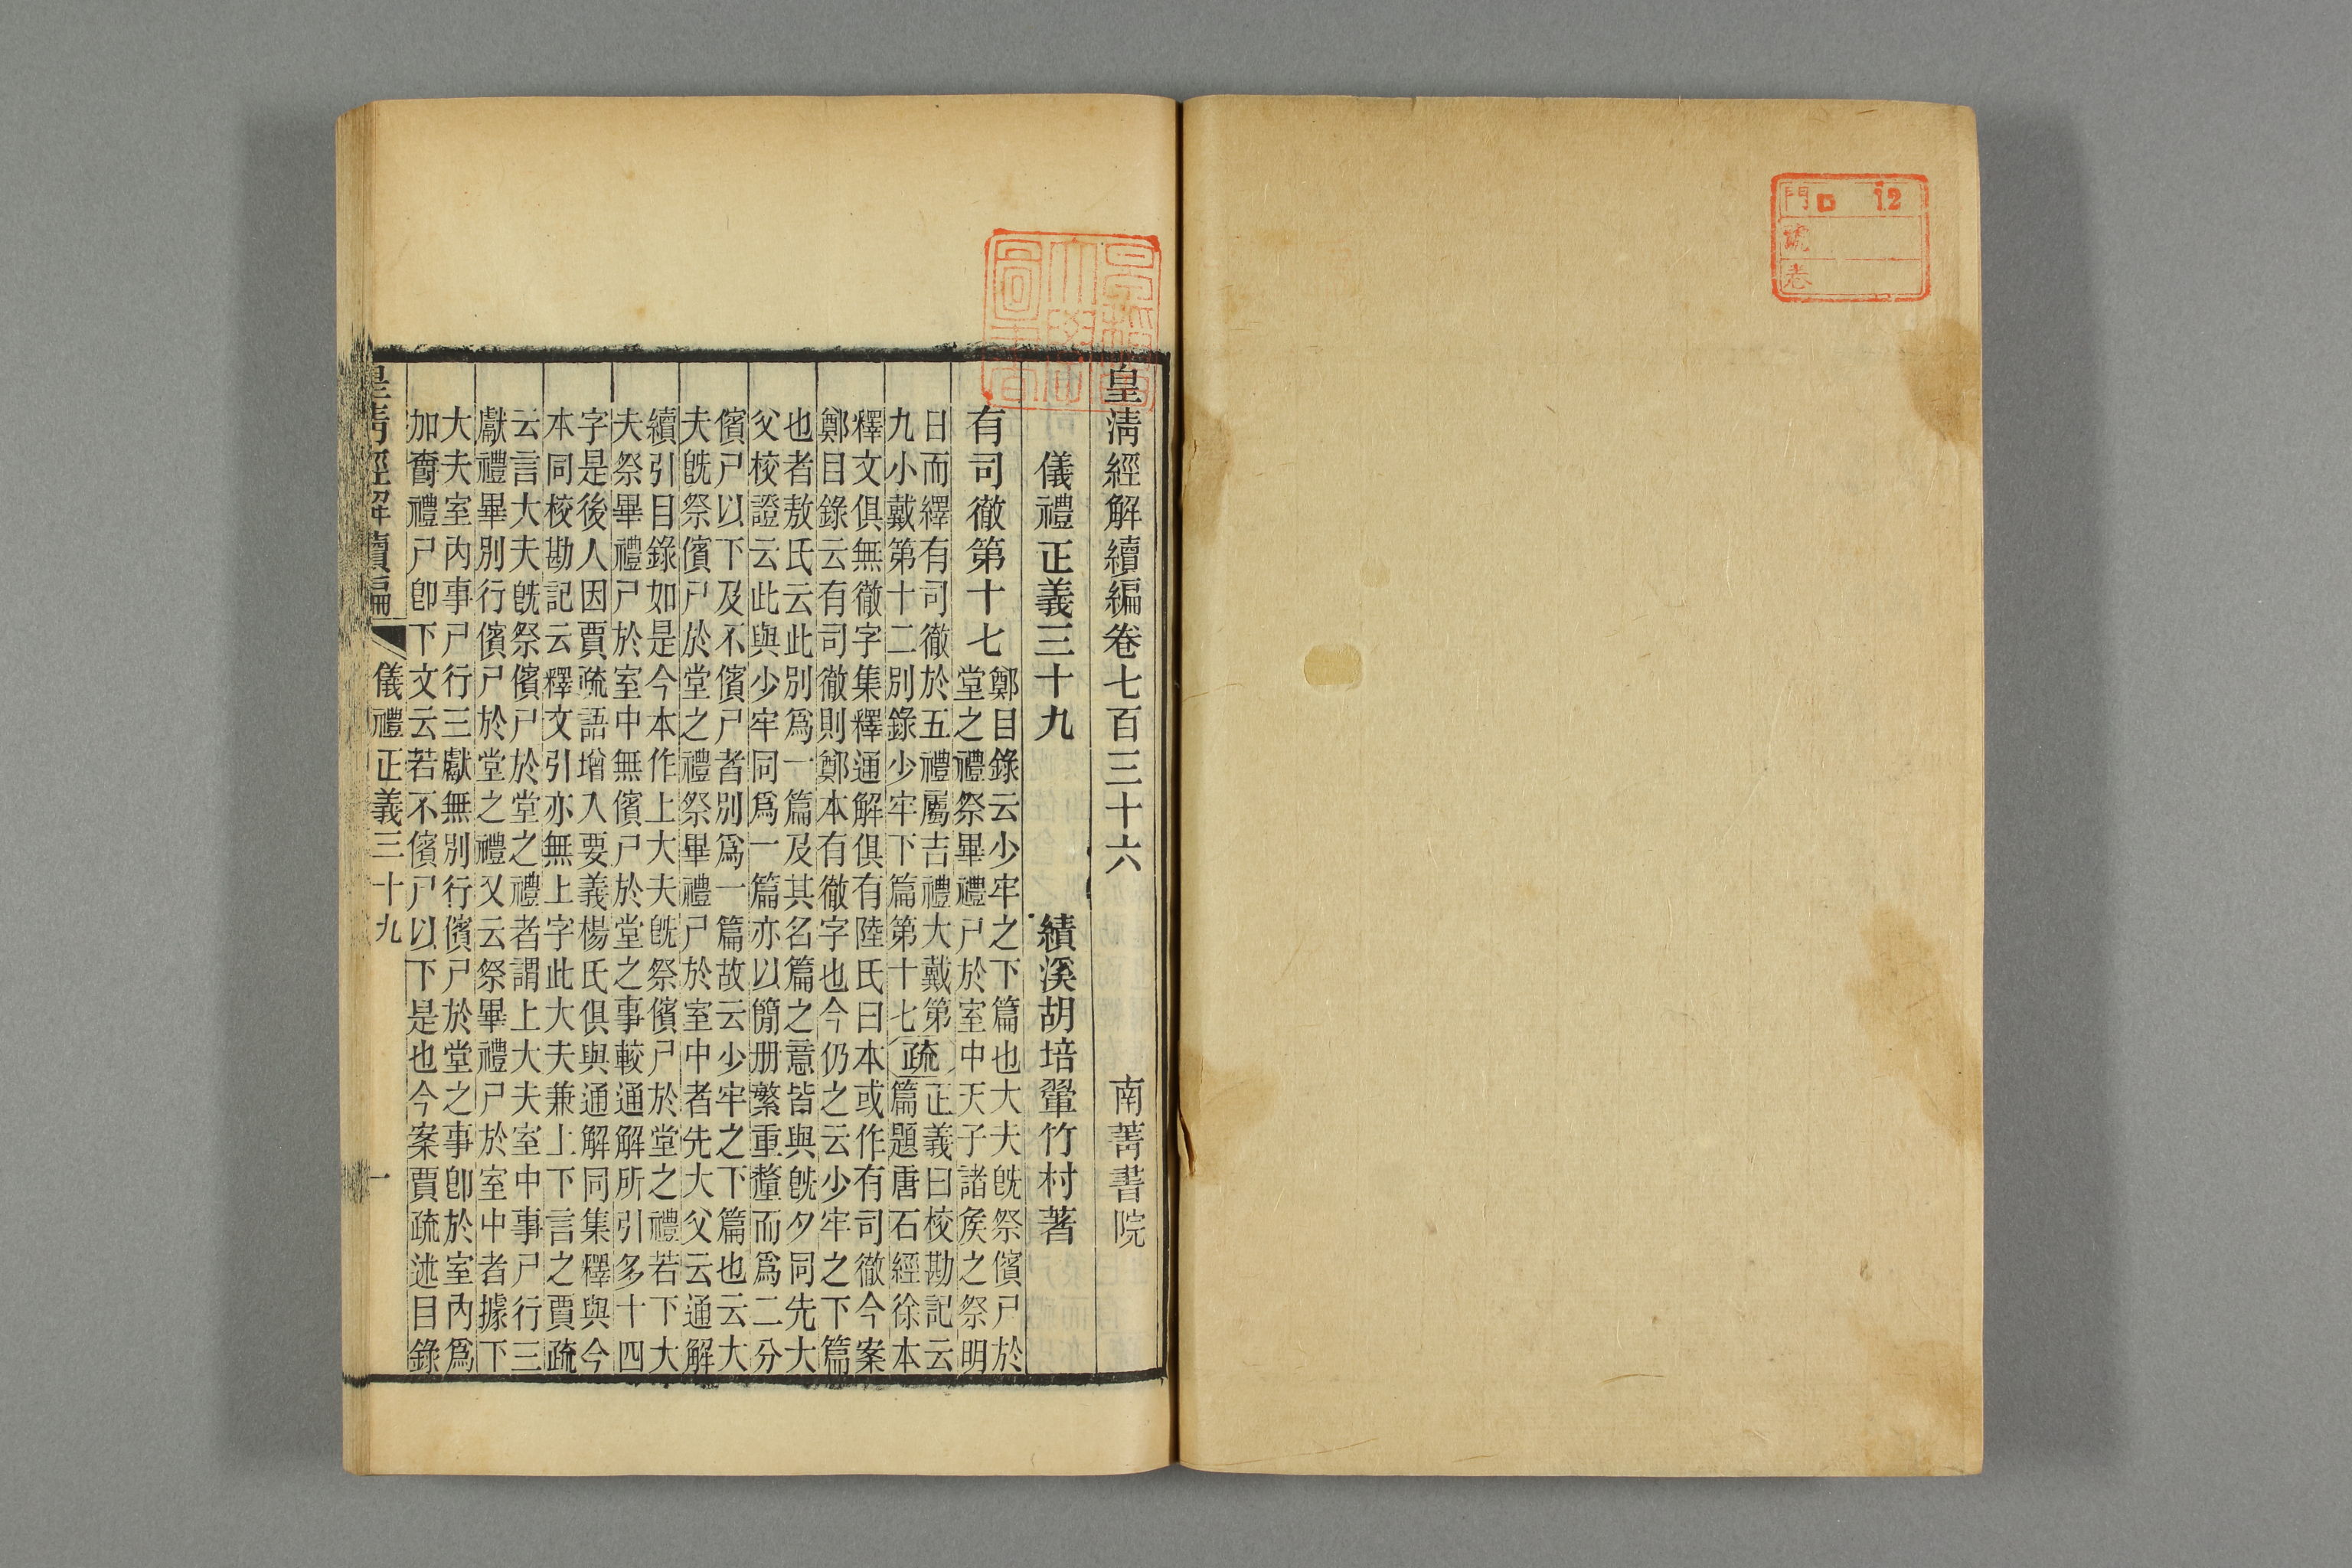 門ロ 12
號
卷
皇淸經解續編卷七百三十六 南菁書院
儀禮正義三十九 績溪胡培翬竹村著
有司徹第十七 鄭目錄云少牢之下篇也大夫旣祭儐尸於
堂之禮祭畢禮尸於室中天子諸矦之祭明
日而繹有司徹於五禮屬吉禮大戴第
九小戴第十二別錄少牢下篇第十七
疏 正義曰校勘記云
篇題唐石經徐本
釋文俱無徹字集釋通解俱有陸氏曰本或作有司徹今案
鄭目錄云有司徹則鄭本有徹字也今仍之云少牢之下篇
也者敖氏云此別爲一篇及其名篇之意皆與旣夕同先大
父校證云此與少牢同爲一篇亦以簡册繁重釐而爲二分
儐尸以下及不儐尸者別爲一篇故云少牢之下篇也云大
夫旣祭儐尸於堂之禮祭畢禮尸於室中者先大父云通解
續引目錄如是今本作上大夫旣祭儐尸於堂之禮若下大
夫祭畢禮尸於室中無儐尸於堂之事較通解所引多十四
字是後人因賈疏語增入要義楊氏俱與通解同集釋與今
本同校勘記云釋文引亦無上字此大夫兼上下言之賈疏
云言大夫旣祭儐尸於堂之禮者謂上大夫室中事尸行三
獻禮畢別行儐尸於堂之禮又云祭畢禮尸於室中者據下
大夫室內事尸行三獻無別行儐尸於堂之事卽於室內爲
加爵禮尸卽下文云若不儐尸以下是也今案賈疏述目錄
皇淸經解續編 儀禮正義三十九 一